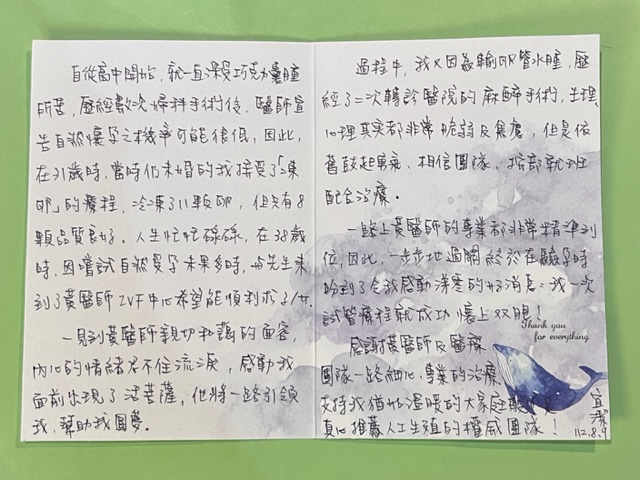 自從高中開始,就一直深受巧克力囊腫
所苦,歷經數次婦科手術後,醫師宣
告自然懷孕之機率可能很低,因此,
在31歲時,當時仍未婚的我接受了「凍
卵」的療程,冷凍了11顆卵,但只有8
顆品質良好。人生忙忙碌碌,在38歲
時,因嘗試自然受孕未果多時,與先生來
到了黃醫師IVF中心希望能順利求子/女。
一見到黃醫師親切和藹的面容,
內心的情緒忍不住流淚,感動我
面前出現了活菩薩,他將一路引領
我,幫助我圓夢。
過程中,我又因為輸卵管水腫,歷
經了二次轉診醫院的麻醉手術,生理、
心理真實都非常脆弱及焦慮,但是依
舊鼓起勇氣、相信團隊、按部就班
配合治療。
一路上黃醫師的專業都非常精準到
位,因此,一步步地過關終於在驗孕時
盼到了令我感動涕零的好消息:我一次
試管療程就成功懷上双胞!
Thank you
for everything.
感謝黃醫師及醫療
團隊一路細心、專業的治療
支持我猶如溫暖的大家庭
真心推薦人工生殖的權威團隊!
宜潔
112.8.9